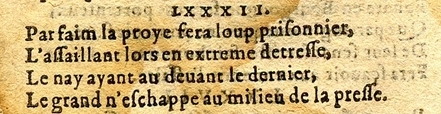 LXXXII.
Par faim la proye fera loup priſonnier,
L'aſſaillant lors en extreme detreſſe,
Le nay ayant au deuant le dernier,
Le grand n'eſchappe au milieu de la preſſe.